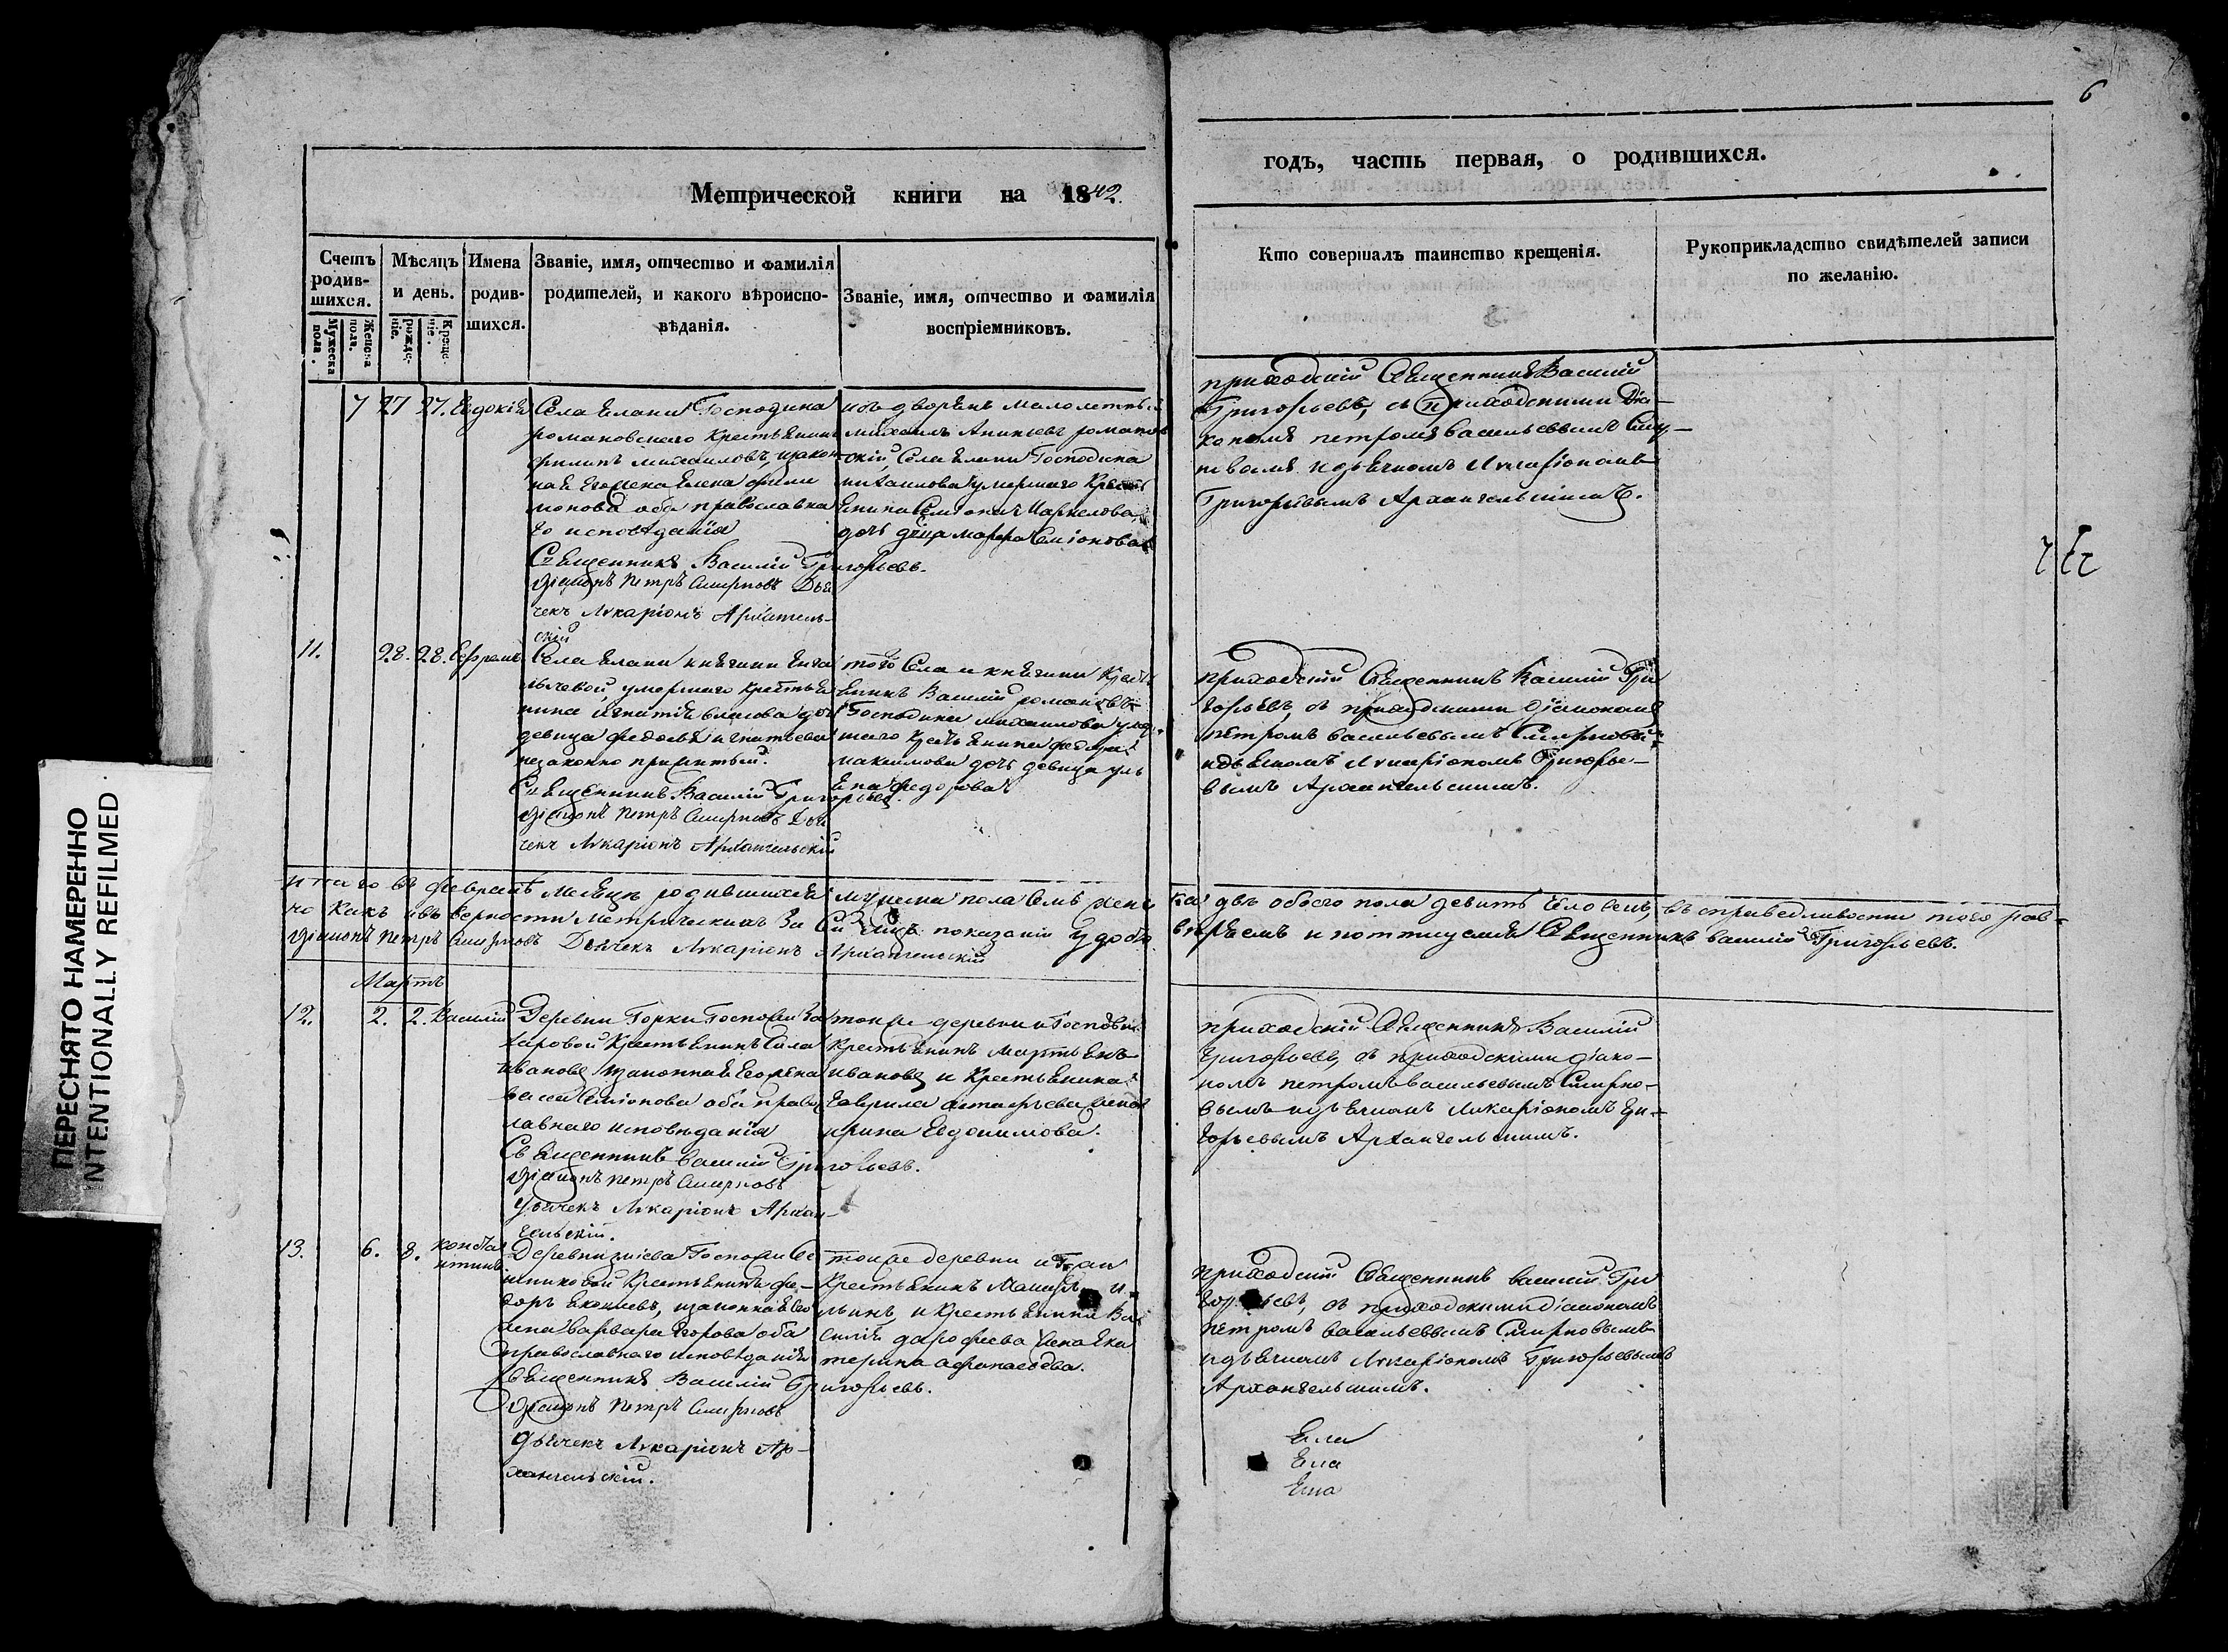 6
Метрической книги на 1842.
годъ, часть первая, о родившихся.
Счетъ родив-шихся.
Мужеска пола.
Женска пола.
Мѣсяцъ и день.
рожде-нiе.
Креще-нiе.
Имена родив-шихся.
Званiе, имя, отчество и фамилiя
родителей, и какого вѣроиспо-
вѣданiя.
Званiе, имя, отчество и фамилiя
воспрiемниковъ.
Кто совершалъ таинство крещенiя.
Рукоприкладство свидѣтелей записи
по желанiю.
7 27 27. Евдокiя
Села Елани Господина
романовскаго Крестьянинъ
филипъ михаиловъ, изакон
ная Егожена Елена фили
монова оба православна
го исповѣданiя
Священникъ Василiй Григорьевъ.
дiаконъ петръ Смирновъ Дья
чекъ Лукарiонъ Архангель-
скiй
изъ дворянъ малолетнiй
михаилъ романов
скiй, Села Елани Господина
михаилова умершаго Кресть
янина Семiона Маркелова
дочь дѣвица марфа Семiонова
приходскiй Священникъ Василiй
Григорьевъ, съ приходскими Дiа-
кономъ петромъ васильевымъ Сми-
рновымъ идьячкомъ Лукарiономъ
Григорьевымъ Архангельскимъ.
11. 28. 28. Ефремъ
Села Елани княгини Енга
лычевой умершаго крестья
нина игнатiя власова дочь
девица федосья игнатьева
незаконно прижитый.
Священникъ Василiй Григорьевъ.
дiаконъ петръ Смирновъ Дья
чекъ Лукарiонъ Архангельскiй
того Села и княгини Крест
янинъ Василiй романовъ
Господина михаилова умер
шаго Крестьянина федора
максимова дочь девица уль
яна федорова
приходскiй Священникъ Василiй Гри
горьевъ, съ приходскими дiакономъ
петромъ васильевымъ Смирновым
идьячкомъ Лукарiономъ Григорье-
вымъ Архангельскимъ.
итого въ февралѣ месяцѣ родившихся мужеска пола семь женска двѣ обоего пола девять человекъ, въ справедливости чего рав-
но какъ ивъ верности метрическихъ За Сiй показанiй удостоверяемъ и потпиуемся Священникъ василiй Григорьевъ.
дiаконъ петръ Смирновъ Дьячекъ Лукарiонъ Архангельскiй
Мартъ
12. 2. 2. Василiй
Деревни Горки Госпожи За
харовой Крестьянинъ Сила
Ивановъ изаконная Его жена
Семiонова оба правос
лавнаго исповѣданiя
Священникъ василiй Григорьевъ.
дiаконъ петръ Смирновъ
дьячекъ Лукарiонъ Архан-
гельскiй.
тойже деревни и Госпожи
крестьянинъ Мартьянъ
ивановъ и Крестьянина
Гаврила астафьева жена
ирина Евдокимова.
приходскiй Священникъ Василiй
Григорьевъ, съ приходскими дiако-
номъ петромъ васильевымъ Смирно-
вымъ идьячкомъ Лукарiономъ Гри-
горьевымъ Архангельскимъ.
13. 6. 8. конста
нтинъ
Деревни Госпожи
Крестьянинъ фе-
доръ Яковлевъ, изаконная Его
жена варвара Егорова оба
православнаго исповѣданiя
Священникъ Василiй Григорьевъ.
дiаконъ петръ Смирновъ
дьячекъ Лукарiонъ Ар-
хангельскiй.
тойже деревни и Г-жи
Крестьянинъ
и Крестьянина Ва
силiя дарофеева жена Ека
терина афанасьева.
приходскiй Священникъ василiй Гри
горьевъ, съ приходскими дiакономъ
петромъ васильевымъ Смирновымъ
идьячкомъ Лукарiономъ Григорьевымъ
Архангельскимъ.
Ела
Ела
Ела
ПЕРЕСНЯТО НАМЕРЕННО
INTENTIONALLY REFILMED